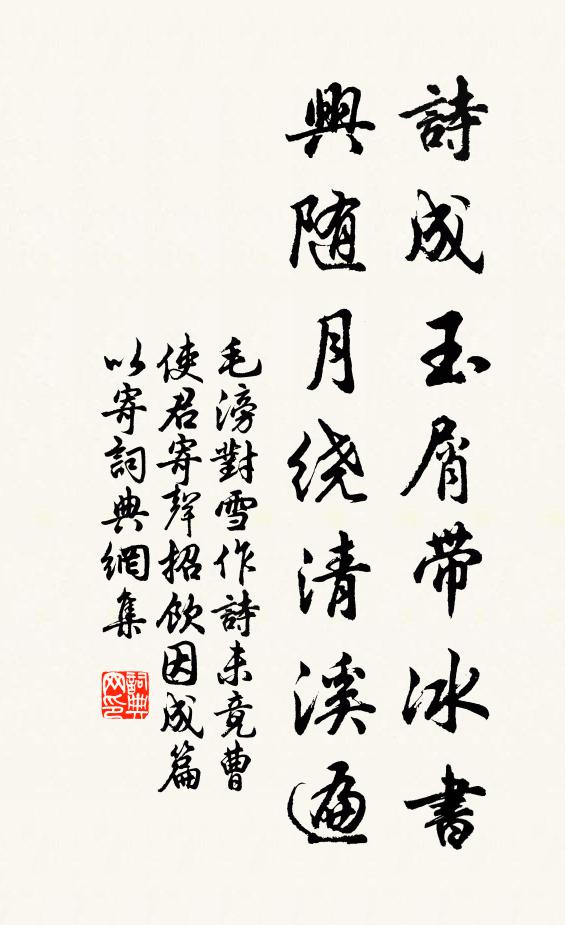 詩成玉屑带冰書
興随月绕清溪遍
毛滂對雪作詩未竟曹
使君寄聲招飲因成篇
以寄詞典網集
詞典网印